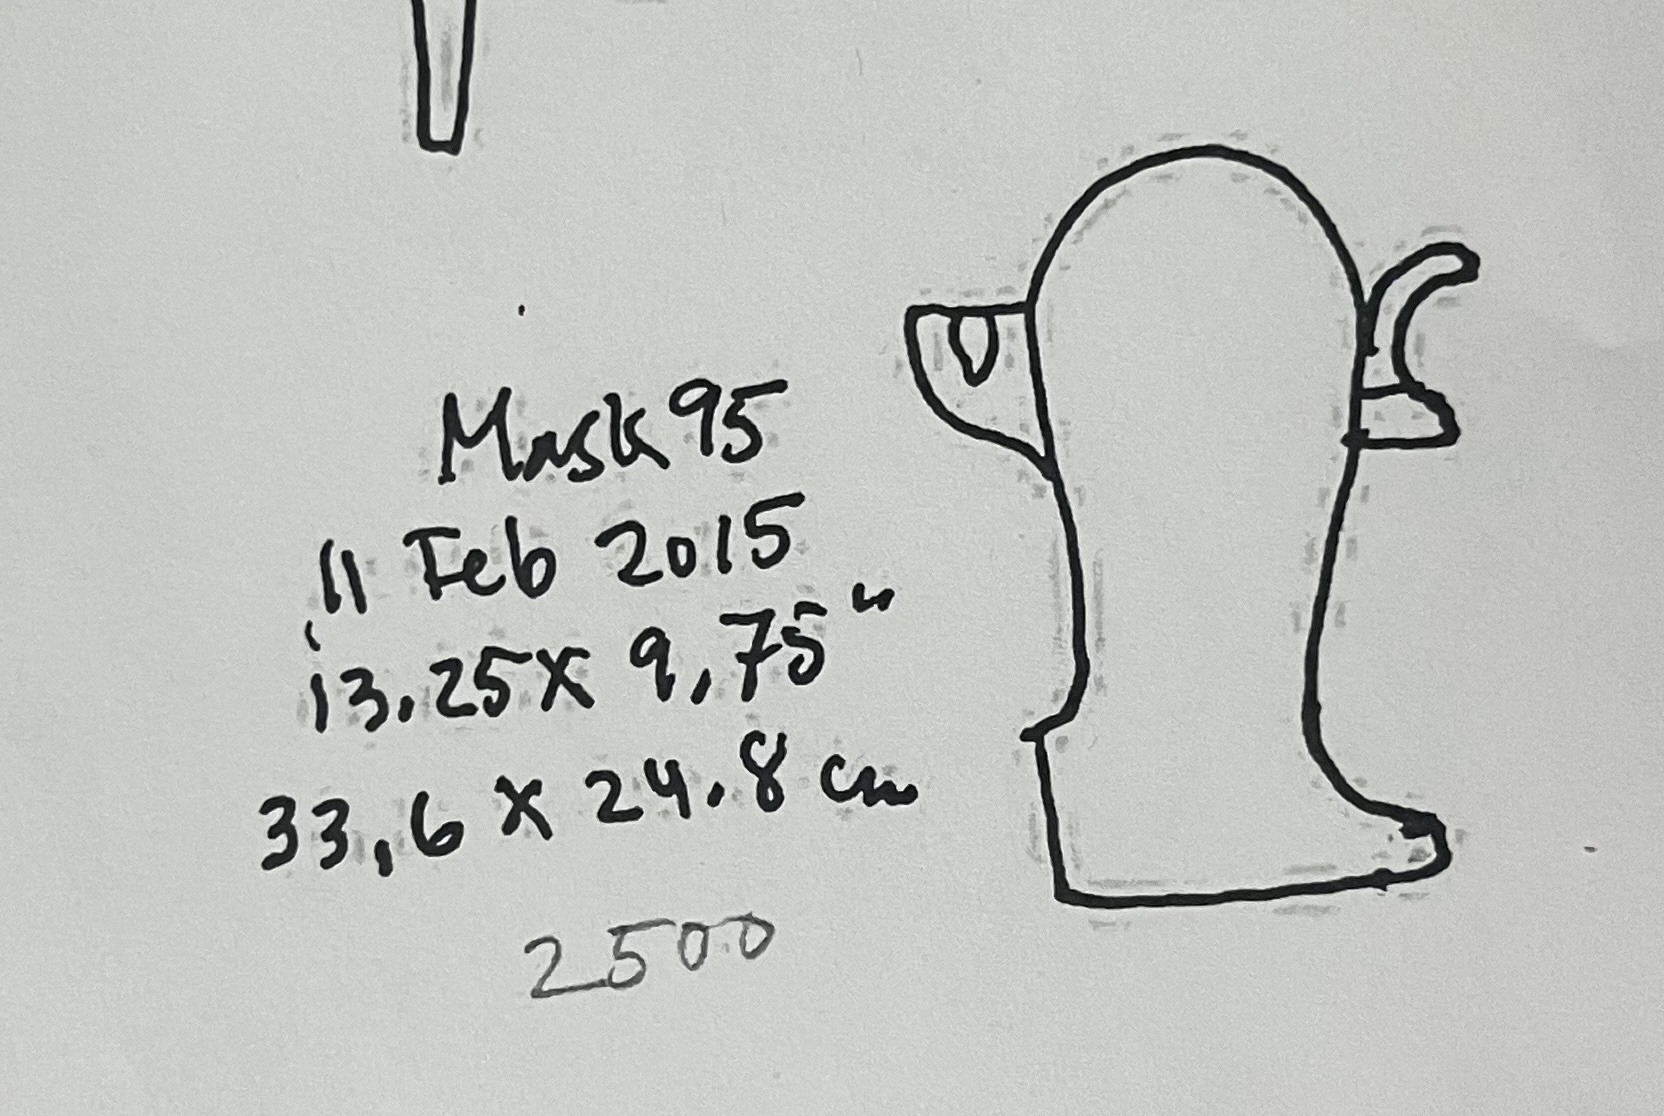 Mask 95
11 Feb 2015
13.25 x 9,75"
33,6 x 24.8 cm
2500